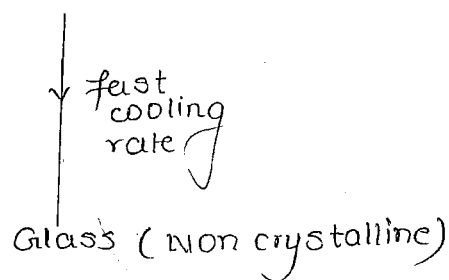 fast
cooling
rate
Glass (Non crystalline)